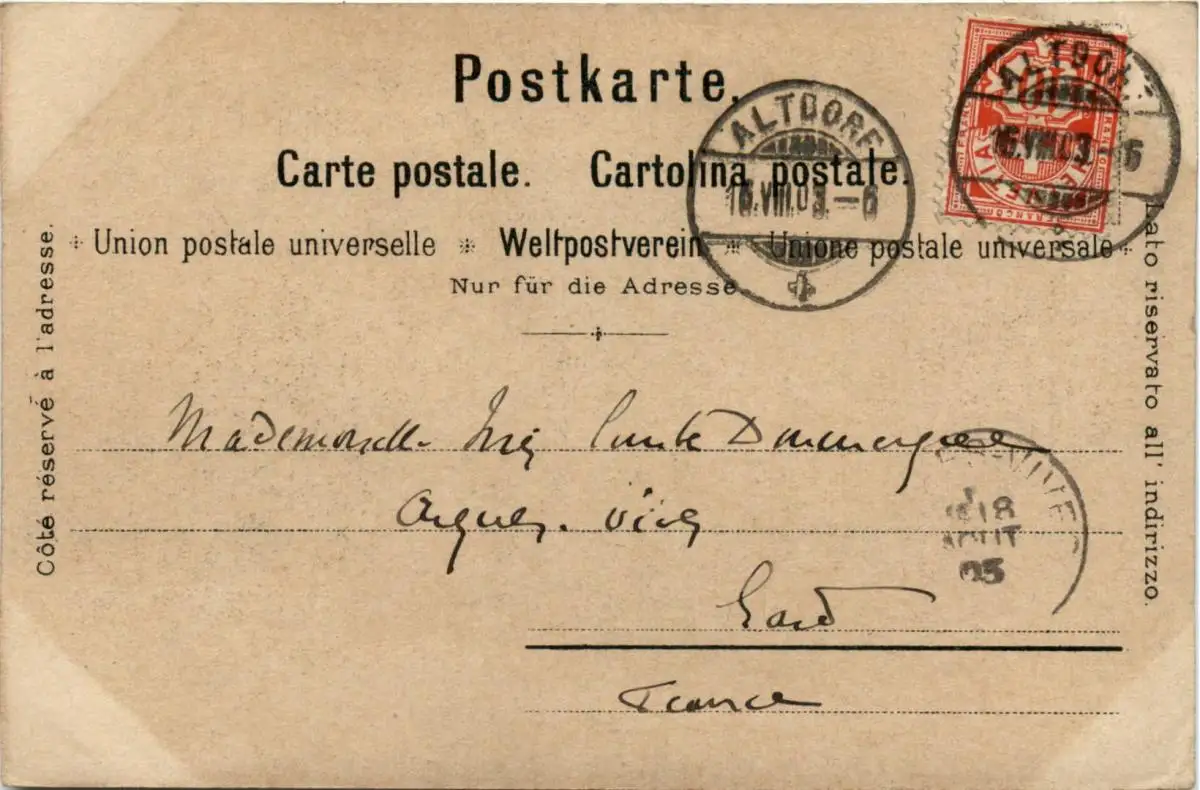 Postkarte.
Carte postale. Cartolina postale.
Union postale universelle * Weltpostverein * Unione postale universale
Nur für die Adresse.
Côté réservé à l'adresse.
Lato riservato all' indirizzo.
ALTDORF
16.VIII.03.–6
ALTDORF
16.VIII.03.–6
FRANCO
10
Mademoiselle
Aigues-Vives
18
AOUT
03
Gard
France